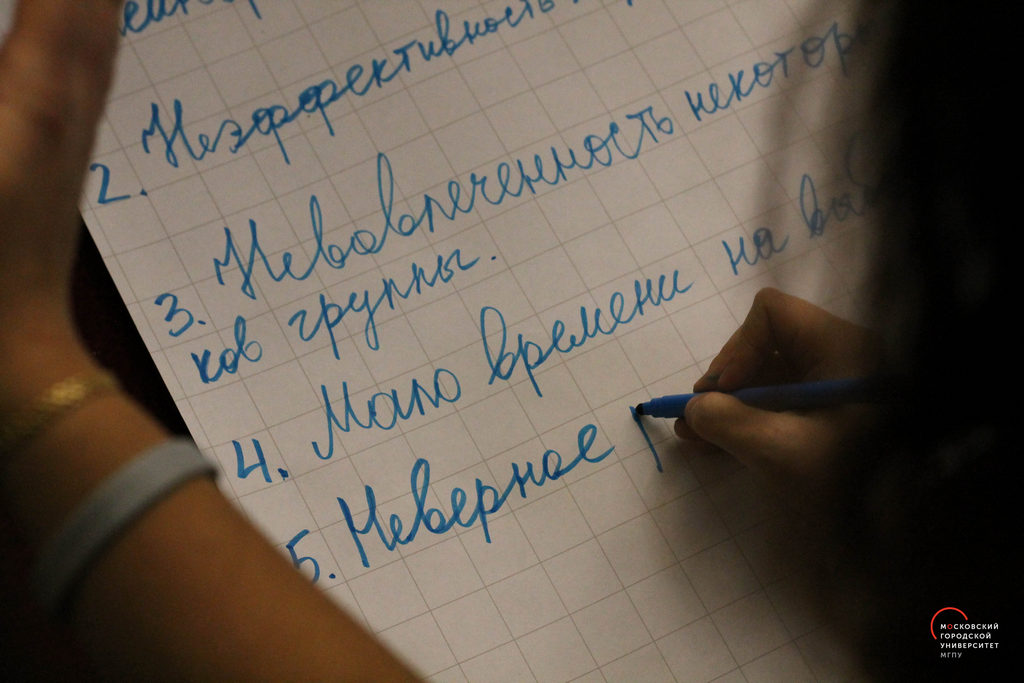 2. Неэффективность
3. Невовлеченность
ков группы.
4. Мало времени на
5. Неверное
МОСКОВСКИЙ
ГОРОДСКОЙ
УНИВЕРСИТЕТ
МГПУ